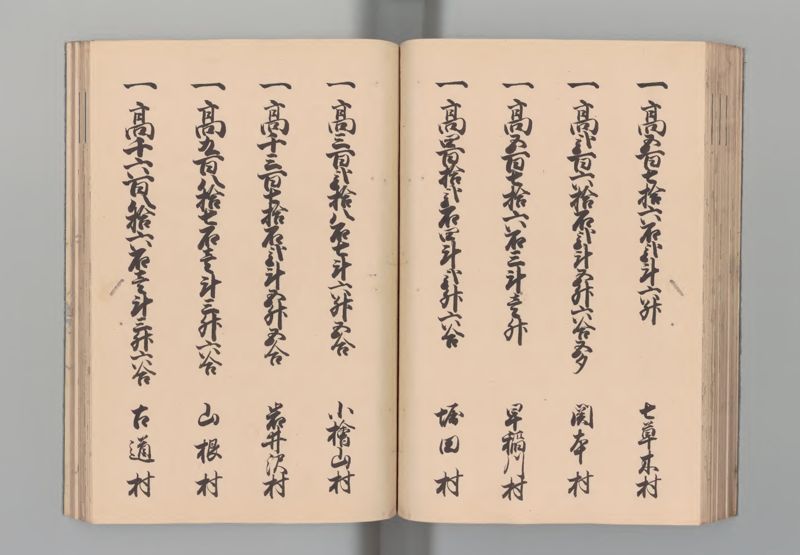 一高五百七拾六石弐斗六升 七草木村
一高弐百六拾石弐斗五升六合五夕 関本村
一高五百七拾六石三斗壱升 早稲川村
一高四百拾弐石四斗弐升六合 堀田村
一高三百弐拾八石七斗六升五合 小檜山村
一高千三百七拾石弐斗五升五合 岩井沢村
一高九百八拾七石壱斗三升六合 山根村
一高千六百八拾六石壱斗三升六合 古道村